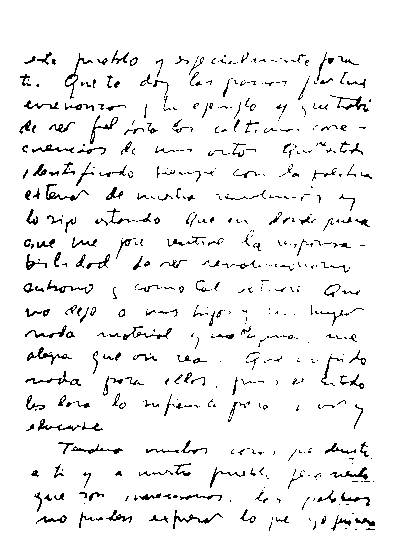 este pueblo y especialmente para
ti. Que te doy las gracias por tus
enseñanzas y tu ejemplo y que trataré
de ser fiel hasta las últimas conse-
cuencias de mis actos. Que he estado
identificado siempre con la política
exterior de nuestra revolución y
lo sigo estando. Que en donde quiera
que me pare sentiré la responsa-
bilidad de ser revolucionario
cubano y como tal actuaré. Que
no dejo a mis hijos y mi mujer
nada material y no me apena: me
alegra que así sea. Que no pido
nada para ellos, pues el estado
les dará lo suficiente para vivir y
educarse.
Tendría muchas cosas que decirte
a ti y a nuestro pueblo pero siento
que son innecesarias, las palabras
no pueden expresar lo que yo quisiera